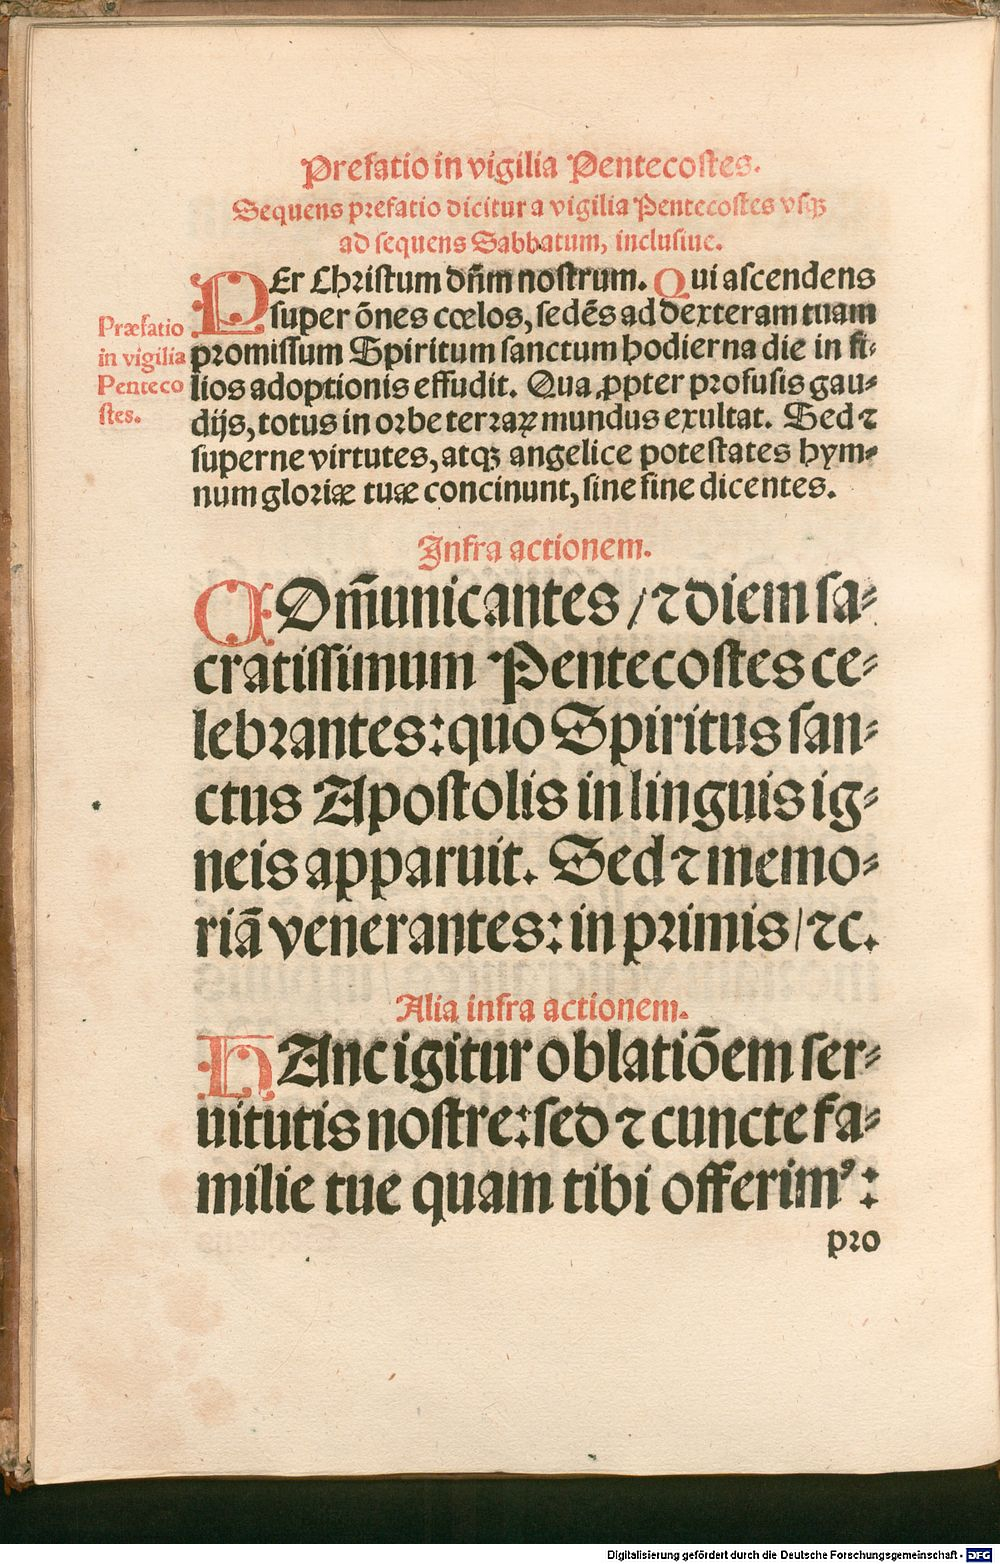 Prefatio in vigilia Pentecostes.
Sequens prefatio dicitur a vigilia Pentecostes vsqꝫ
ad sequens Sabbatum, inclusiue.
PEr Christum dñm nostrum. Qui ascendens
super õnes cœlos, sedẽs ad dexteram tuam
promissum Spiritum sanctum hodierna die in fi⸗
lios adoptionis effudit. Qua ꝓpter profusis gau⸗
dijs, totus in orbe terraꝝ mundus exultat. Sed ⁊
superne virtutes, atqꝫ angelice potestates hym⸗
num gloriæ tuæ concinunt, sine fine dicentes.
Præfatio
in vigilia
Penteco
stes.
Infra actionem.
COm̃unicantes / ⁊ diem sa⸗
cratissimum Pentecostes ce⸗
lebrantes: quo Spiritus san⸗
ctus Apostolis in linguis ig⸗
neis apparuit. Sed ⁊ memo⸗
riã venerantes: in primis / ⁊c.
Alia infra actionem.
HAnc igitur oblatiõem ser⸗
uitutis nostre: sed ⁊ cuncte fa⸗
milie tue quam tibi offerimꝰ:
pro
Digitalisierung gefördert durch die Deutsche Forschungsgemeinschaft - DFG